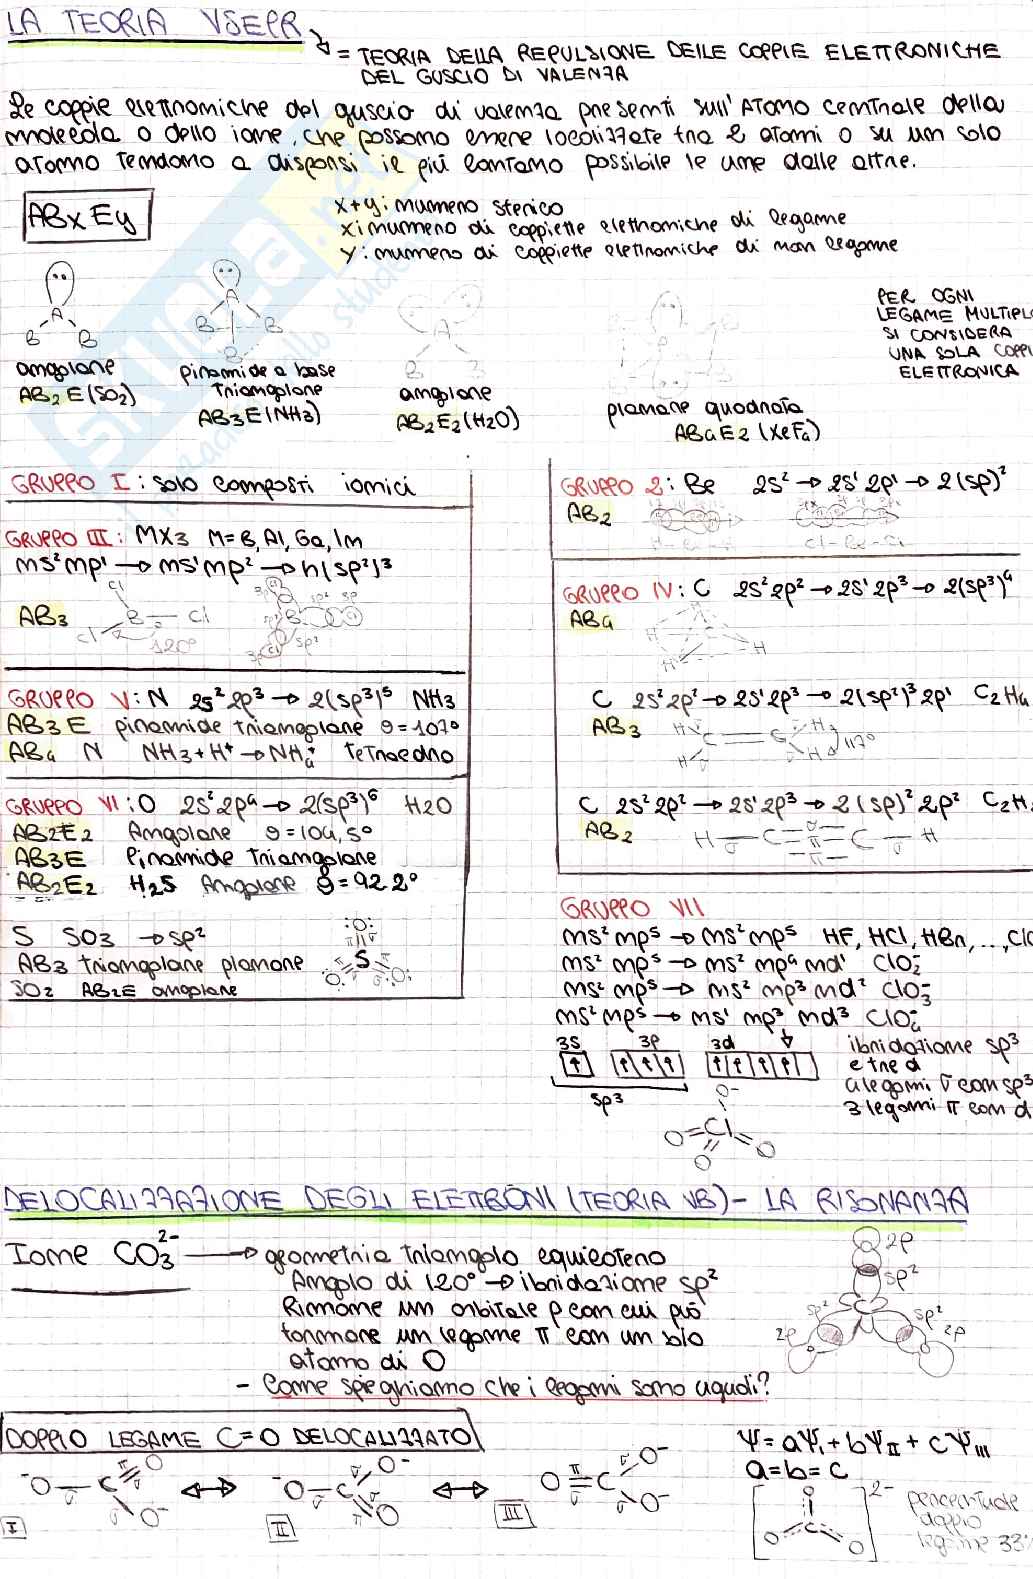 LA TEORIA VSEPR
= TEORIA DELLA REPULSIONE DELLE COPPIE ELETTRONICHE
DEL GUSCIO DI VALENZA
Le coppie elettroniche del guscio di valenza presenti sull'Atomo centrale della
molecola o dello ione, che possono essere localizzate tra 2 atomi o su un solo
atomo tendono a disporsi il più lontano possibile le une dalle altre.
ABxEy
x+y: numero sterico
x: numero di coppiette elettroniche di legame
y: numero di coppiette elettroniche di non legame
PER OGNI
LEGAME MULTIPLO
SI CONSIDERA
UNA SOLA COPPI
ELETTRONICA
A
B B
angolare
AB2E (SO2)
A
B B
B
piramide a base
triangolare
AB3E (NH3)
A
B B
angolare
AB2E2 (H2O)
planare quadrata
AB4E2 (XeF4)
GRUPPO I: solo composti ionici
GRUPPO III: MX3 M=B, Al, Ga, In
ns² np¹ → ns¹ np² → n(sp²)³
AB3
Cl
B Cl
Cl
120°
sp²
GRUPPO V: N 2s² 2p³ → 2(sp³)⁵ NH3
AB3E piramide triangolare θ=107°
AB4 N NH3 + H⁺ → NH4⁺ tetraedro
GRUPPO VI: O 2s² 2p⁴ → 2(sp³)⁶ H2O
AB2E2 Angolare θ=104,5°
AB3E Piramide triangolare
AB2E2 H2S Angolare θ=92.2°
S SO3 → sp²
AB3 triangolare planare
SO2 AB2E angolare
O
S
O O
GRUPPO 2: Be 2s² → 2s¹ 2p¹ → 2(sp)²
AB2
H-Be-H
Cl-Be-Cl
GRUPPO IV: C 2s² 2p² → 2s¹ 2p³ → 2(sp³)⁴
AB4
C 2s² 2p² → 2s¹ 2p³ → 2(sp²)³ 2p¹ C2H4
AB3
117°
C 2s² 2p² → 2s¹ 2p³ → 2(sp)² 2p² C2H
AB2
H σ C σ π π C σ H
GRUPPO VII
ns² np⁵ → ns² np⁵ HF, HCl, HBr, ..., ClO
ns² np⁵ → ns² np⁴ nd¹ ClO2⁻
ns² np⁵ → ns² np³ nd² ClO3⁻
ns² np⁵ → ns¹ np³ nd³ ClO4⁻
3s 3p 3d
sp³
ibridazione sp³
e tre d
4 legami σ con sp³
3 legami π con d
O⁻
O Cl O
O
DELOCALIZZAZIONE DEGLI ELETTRONI (TEORIA VB) - LA RISONANZA
Ione CO3²⁻ → geometria triangolo equilatero
Angolo di 120° → ibridazione sp²
Rimane un orbitale p con cui può
formare un legame π con un solo
atomo di O
- Come spieghiamo che i legami sono uguali?
2p
sp²
sp² C sp²
2p 2p
DOPPIO LEGAME C=O DELOCALIZZATO
⁻O σ C π σ O σ O⁻
I
⁻O σ C σ O⁻ π σ O
II
O π σ C σ O⁻ σ O⁻
III
Ψ = aΨI + bΨII + cΨIII
a=b=c
O C O O 2-
percentuale
doppio
legame 33%